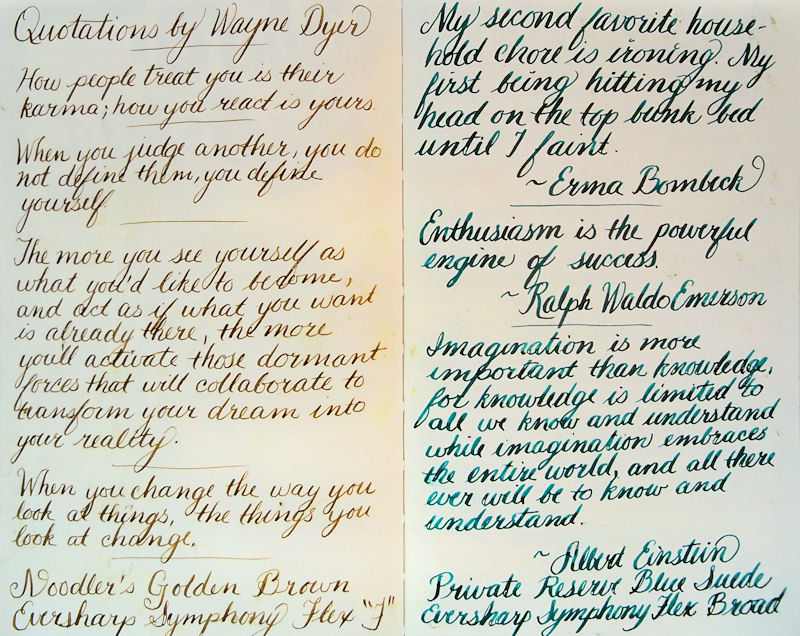 Quotations by Wayne Dyer
How people treat you is their
karma; how you react is yours.
When you judge another, you do
not define them, you define
yourself
The more you see yourself as
what you'd like to become,
and act as if what you want
is already there, the more
you'll activate those dormant
forces that will collaborate to
transform your dream into
your reality.
When you change the way you
look at things, the things you
look at change.
Noodler's Golden Brown
Eversharp Symphony Flex "F"
My second favorite house-
hold chore is ironing. My
first being hitting my
head on the top bunk bed
until I faint.
~ Erma Bombeck
Enthusiasm is the powerful
engine of success.
~ Ralph Waldo Emerson
Imagination is more
important than knowledge,
for knowledge is limited to
all we know and understand
while imagination embraces
the entire world, and all there
ever will be to know and
understand.
~ Albert Einstein
Private Reserve Blue Suede
Eversharp Symphony Flex Broad